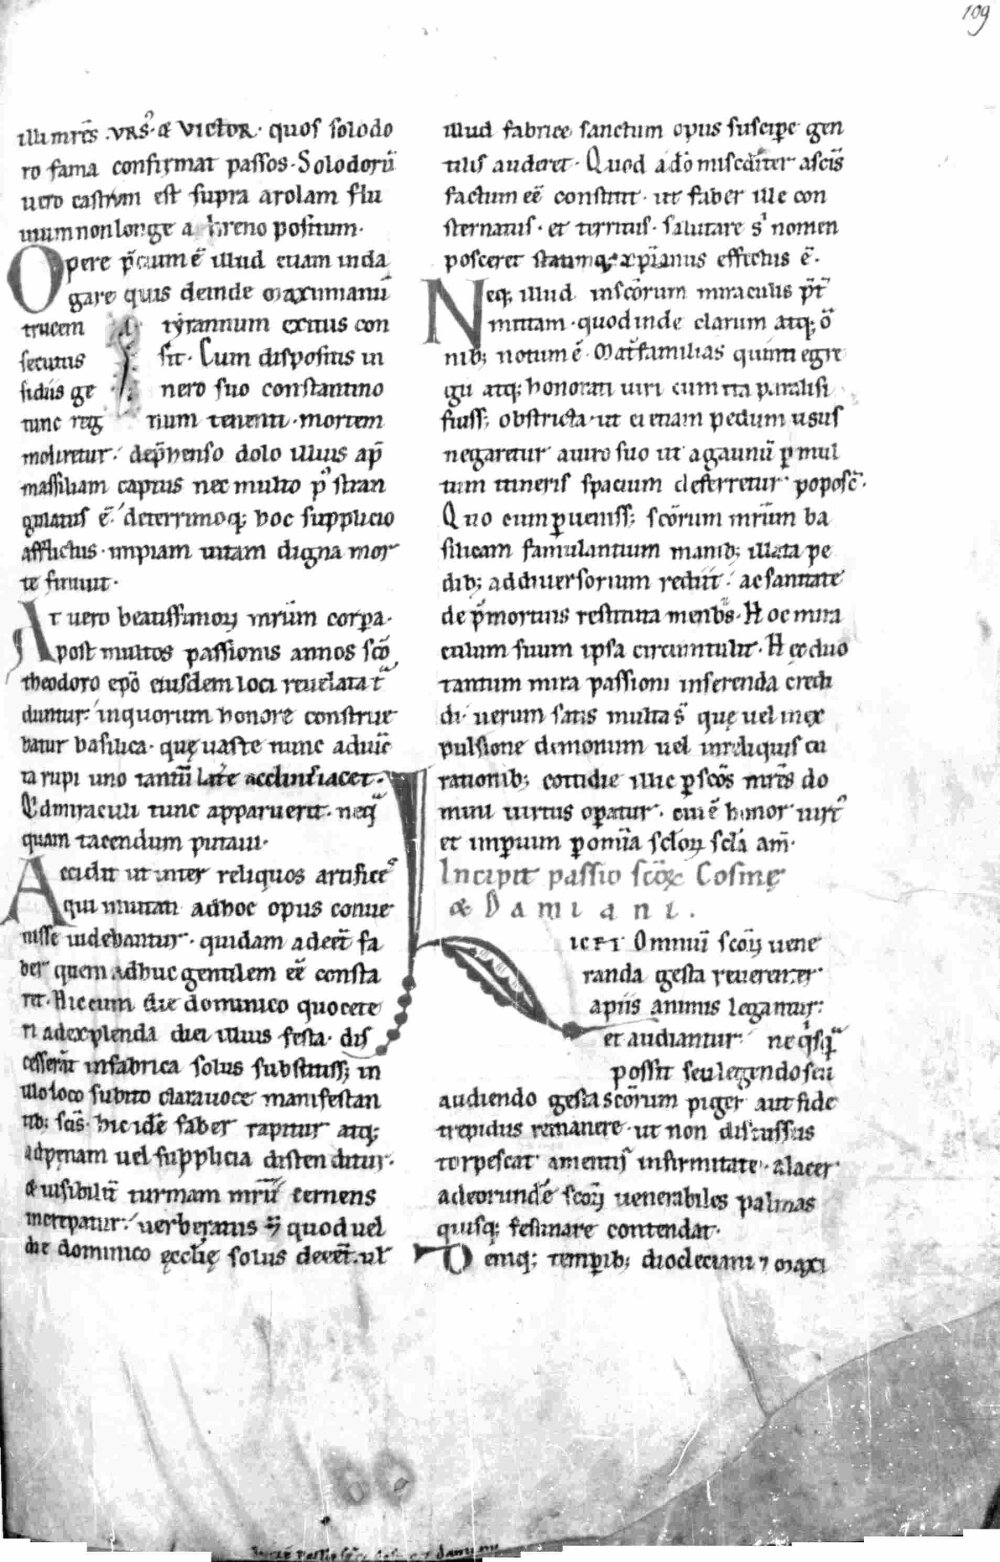 109
illi mr̄es .VRS᷒. & VICTOR. quos solodo
ro fama confirmat passos. Solodorū
uero castrum est supra arolam flu
uium non longe a hreno positum.
Opere p̄cium ē illud etiam inda
gare quis deinde Maximianū
trucem tyrannum exitus con
secutus sit. Cum dispositis in
sidiis ge nero suo constantino
tunc reg num tenenti. mortem
moliretur. dep̄henso dolo illius ap̄
massiliam captus nec multo p᷒ stran
gulatus ē. deterrimoq; hoc supplicio
afflictus. impiam uitam digna mor
te finiuit.
At uero beatissimoꝝ mr̄um corꝑa.
post multos passionis annos sc̄o
theodoro ep̄o eiusdem loci reuelata t̄
duntur. in quorum honore construe
batur basilica. quę uaste nunc adiūc
ta rupi uno tantū latere acclinis iacet.
Qd miraculi tunc apparuerit. neq̄
quam tacendum putaui.
Accidit ut inter reliquos artifices
qui inuitati ad hoc opus conue
nisse uidebantur. quidam adeēt fa
ber quem adhuc gentilem eē consta
ret. Hic cum die dominico quo cete
ri ad explenda diei illius festa. dis
cesserāt in fabrica solus substitiss; in
illo loco subito clara uoce manifestan
tib; scīs. hic idē faber rapitur atq;
ad penam uel supplicia distenditur.
& uisibilit̄ turmam mr̄ū cernens
increpatur. uerberatus qq quod uel
die dominico ęcclię solus deeēt. ul
illud fabrice sanctum opus susciꝑe gen
tilis auderet. Quod a do misc̄diter a sc̄is
factum eē constitit. ut faber ille con
sternatus. et territus. salutare s᷒ nomen
posceret statimq; xp̄ianus effectus ē.
Neq; illud in sc̄orum miraculis p̄t
mittam. quod inde clarum atq; ō
nib; notum ē. Mat̄familias quintę egre
gii atq; honorati uiri cum ita paralisi
fuiss; obstricta. ut ei etiam pedum usus
negaretur a uiro suo ut agaunū ꝑ mul
tum itineris spacium deferretur poposc̄.
Quo cum ꝑueniss; sc̄orum mr̄um ba
silicam famulantium manib; illata pe
dib; ad diuersorium rediit. ac sanitate
de p̄mortuis restituta menbris. Hoc mira
culum suum ipsa circumtulit. Hęc duo
tantum mira passioni inserenda credi
di. uerum satis multa s̄ quę uel in ex
pulsione demonum uel in reliquis cu
rationib; cottidie illic ꝑ sc̄os mr̄es do
mini uirtus oꝑatur. cui ē honor uirt᷒
et imꝑium ꝑ omīa sclōꝝ sclā am̄.
Incipit passio sc̄oꝝ Cosmę
& Damiani.
LICET Omniū sc̄oꝝ uene
randa gesta reuerenter
ac piis animis legantur:
et audiantur. ne q̇sq̄
possit seu legendo seu
audiendo gesta sc̄orum piger aut fide
trepidus remanere. ut non discussus
torpescat a mentis infirmitate. alacer
ad eorundē sc̄oꝝ uenerabiles palmas
quisq; festinare contendat.
Deniq; temporib; diocleciani ⁊ Maxi